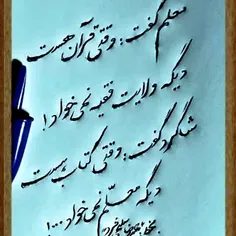 معلم گفت: وقتی قرآن هست
دیگه ولایت فقیه نمی خواد!
شاگرد گفت: وقتی کتاب هست
دیگه معلّم نمی خواد...!